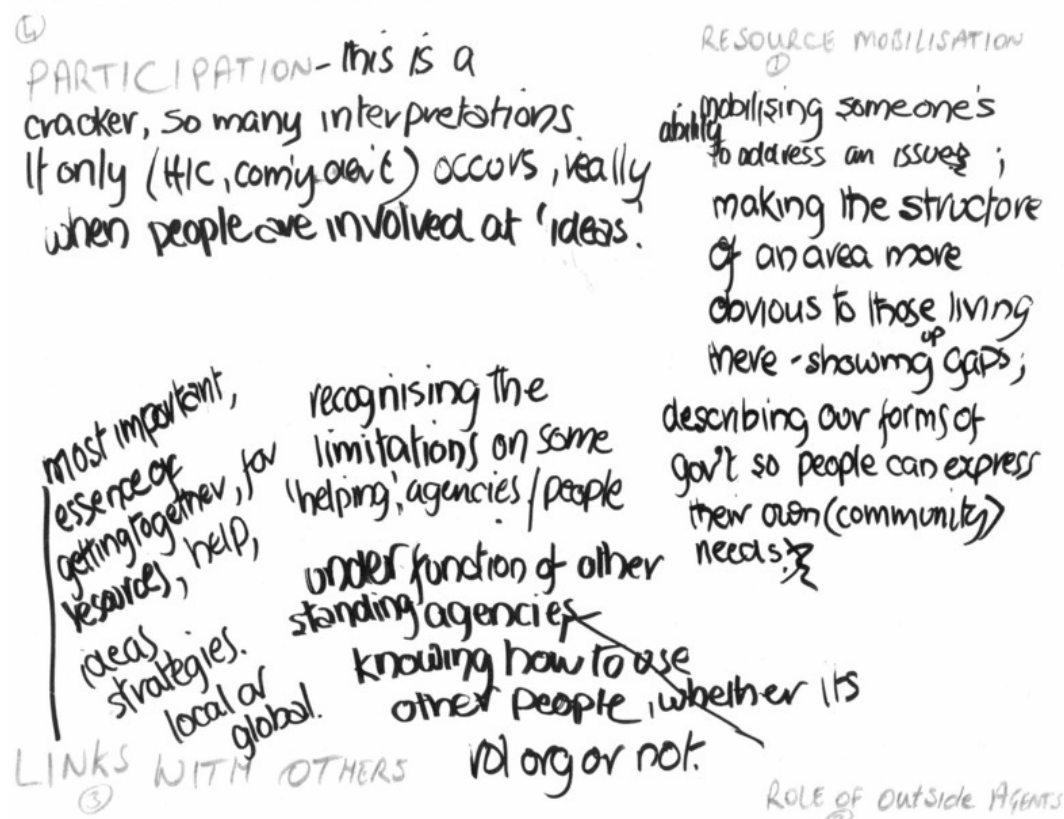 4
PARTICIPATION - this is a
cracker, so many interpretations.
It only (HIC, com'y dev't) occurs, really,
when people are involved at 'ideas'.
RESOURCE MOBILISATION
1
mobilising someone's
ability to address an issue;
making the structure
of an area more
obvious to those living
there - showing up gaps;
describing our forms of
gov't so people can express
their own (community)
needs.
most important,
essence of
getting together, for
resources, help,
ideas
strategies.
local or
global.
LINKS WITH OTHERS
3
recognising the
limitations on some
'helping' agencies/people
under function of other
standing agencies
knowing how to use
other people, whether its
vol org or not.
ROLE OF OUtSide AGENTS
2